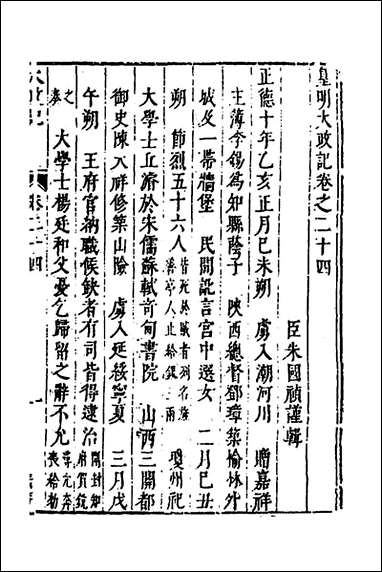 皇明大政記卷之二十四
臣朱國禎謹輯
正德十年乙亥正月己未朔 虜入潮河川 贈嘉祥
主薄李錫為知縣蔭子 陝西總督鄧璋築榆林外
城及一帶墻堡 民間訛言宮中選女 二月己丑
朔 節烈五十六人 瓊州祀
大學士丘濬於宋儒蘇軾奇甸書院 山西三關都
御史陳天祥修築山險 虜入延綏寧夏 三月戊
午朔 王府官納職候缺者有司皆得逮治 開封知府賀銳
之奏 大學士楊廷和父憂乞歸留之辭不允
卷二十四
一